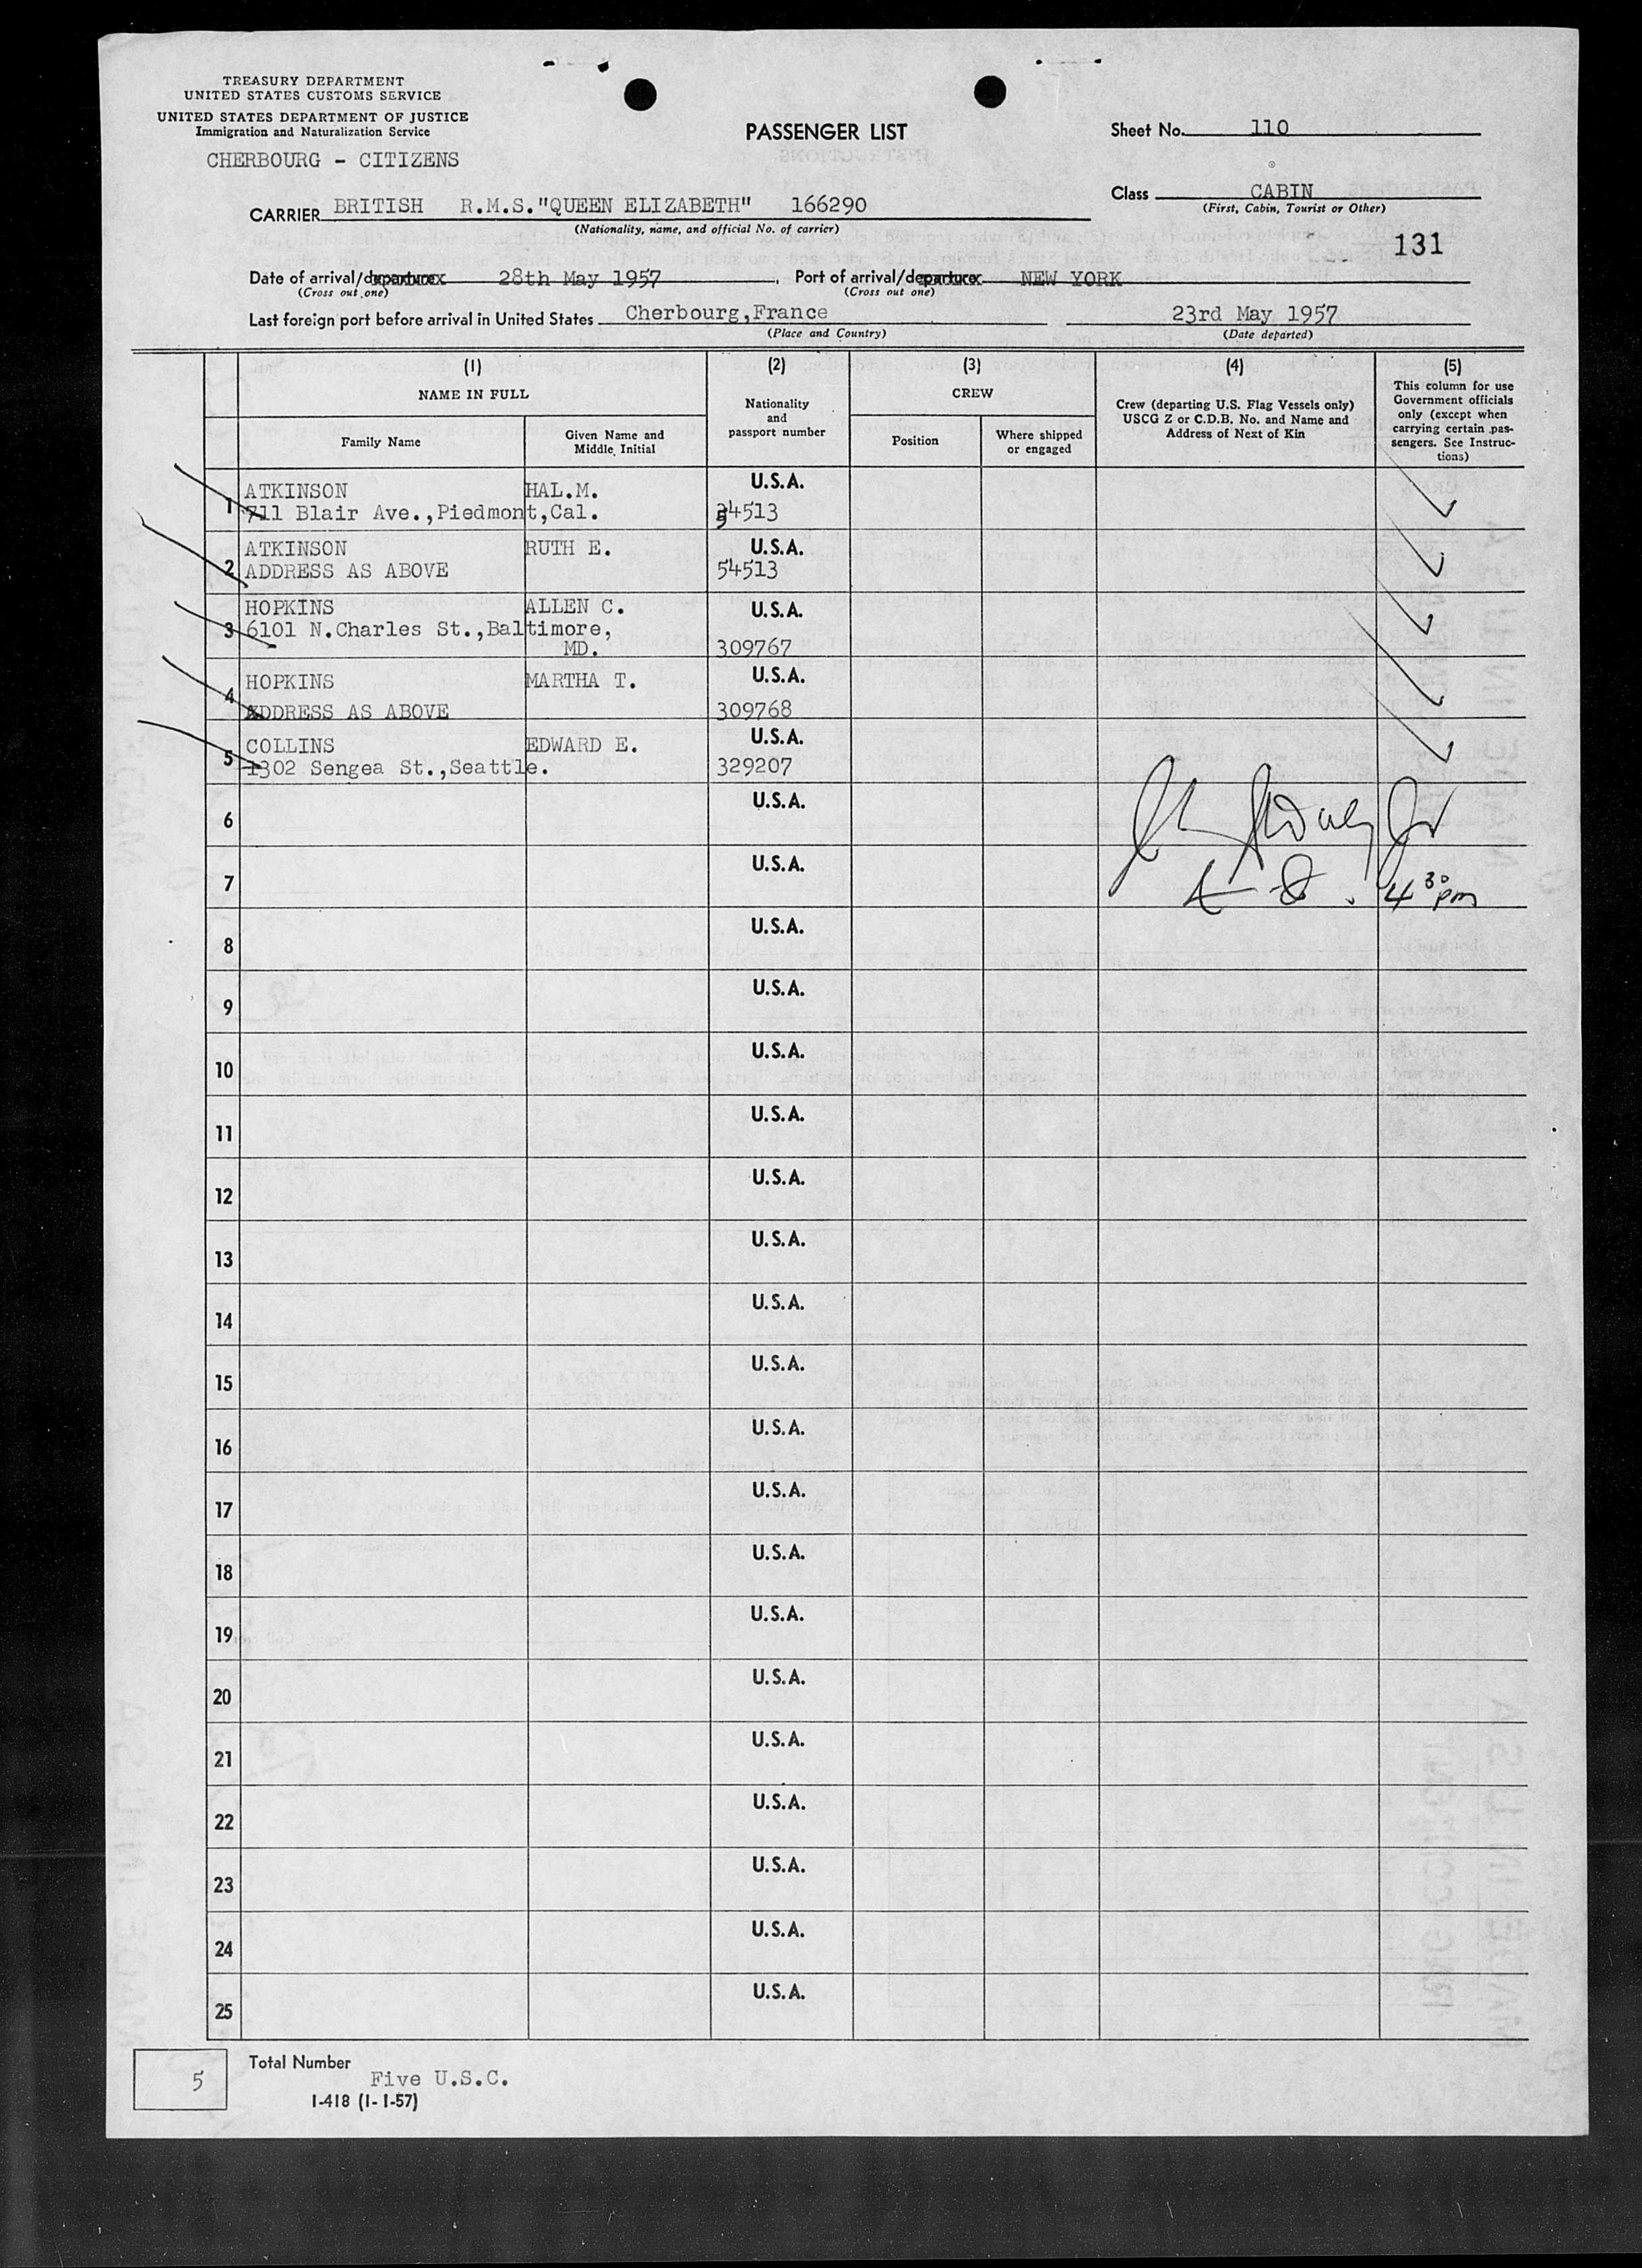 TREASURY DEPARTMENT
UNITED STATES CUSTOMS SERVICE
UNITED STATES DEPARTMENT OF JUSTICE
Immigration and Naturalization Service
CHERBOURG - CITIZENS
PASSENGER LIST
Sheet No. 110
Class CABIN
(First, Cabin, Tourist or Other)
CARRIER BRITISH R.M.S."QUEEN ELIZABETH" 166290
(Nationality, name, and official No. of carrier)
131
Date of arrival/departure 28th May 1957. Port of arrival/departure NEW YORK
(Cross out one) (Cross out one)
Last foreign port before arrival in United States Cherbourg,France 23rd May 1957
(Place and Country) (Date departed)
(1) (2) (3) (4) (5)
NAME IN FULL
Family Name
Given Name and
Middle Initial
Nationality
and
passport number
CREW
Position
Where shipped
or engaged
Crew (departing U.S. Flag Vessels only)
USCG Z or C.D.B. No. and Name and
Address of Next of Kin
This column for use
Government officials
only (except when
carrying certain pas-
sengers. See Instruc-
tions)
1 ATKINSON HAL.M. U.S.A.
711 Blair Ave.,Piedmont,Cal. 54513
2 ATKINSON RUTH E. U.S.A.
ADDRESS AS ABOVE 54513
3 HOPKINS ALLEN C. U.S.A.
6101 N.Charles St.,Baltimore,
MD. 309767
4 HOPKINS MARTHA T. U.S.A.
ADDRESS AS ABOVE 309768
5 COLLINS EDWARD E. U.S.A.
1302 Sengea St.,Seattle. 329207
6 U.S.A.
7 U.S.A.
4 30 pm
8 U.S.A.
9 U.S.A.
10 U.S.A.
11 U.S.A.
12 U.S.A.
13 U.S.A.
14 U.S.A.
15 U.S.A.
16 U.S.A.
17 U.S.A.
18 U.S.A.
19 U.S.A.
20 U.S.A.
21 U.S.A.
22 U.S.A.
23 U.S.A.
24 U.S.A.
25 U.S.A.
5
Total Number
Five U.S.C.
I-418 (1-1-57)